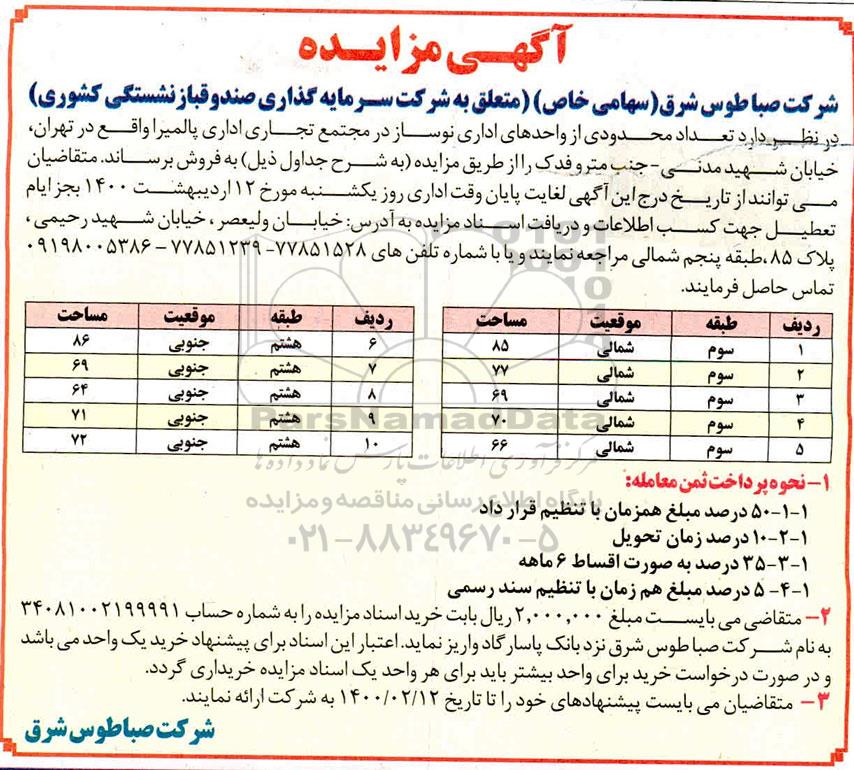 آگهی مزایده
شرکت صبا طوس شرق (سهامی خاص) (متعلق به شرکت سرمایه گذاری صندوقبازنشستگی کشوری)
در نظر دارد تعداد محدودی از واحدهای اداری نوساز در مجتمع تجاری اداری پالمیرا واقع در تهران،
خیابان شهید مدنی - جنب مترو فدک را از طریق مزایده (به شرح جداول ذیل) به فروش برساند. متقاضیان
می توانند از تاریخ درج این آگهی لغایت پایان وقت اداری روز یکشنبه مورخ ۱۲ اردیبهشت ۱۴۰۰ بجز ایام
تعطیل جهت کسب اطلاعات و دریافت اسناد مزایده به آدرس: خیابان ولیعصر، خیابان شهید رحیمی،
پلاک ۸۵، طبقه پنجم شمالی مراجعه نمایند و یا با شماره تلفن های ۷۷۸۵۱۵۲۸- ۷۷۸۵۱۲۳۹ - ۰۹۱۹۸۰۰۵۳۸۶
تماس حاصل فرمایند.
ردیف طبقه موقعیت مساحت
۱ سوم شمالی ۸۵
۲ سوم شمالی ۷۷
۳ سوم شمالی ۶۹
۴ سوم شمالی ۷۰
۵ سوم شمالی ۶۶
ردیف طبقه موقعیت مساحت
۶ هشتم جنوبی ۸۶
۷ هشتم جنوبی ۶۹
۸ هشتم جنوبی ۶۴
۹ هشتم جنوبی ۷۱
۱۰ هشتم جنوبی ۷۲
ParsNamadData
مرکز فرآوری اطلاعات پارس نماد داده ها
پایگاه اطلاع رسانی مناقصه و مزایده
۰۲۱-۸۸۳۴۹۶۷۰-۵
۱- نحوه پرداخت ثمن معامله:
۱-۱-۵۰ درصد مبلغ همزمان با تنظیم قرار داد
۱-۲-۱۰ درصد زمان تحویل
۱-۳-۳۵ درصد به صورت اقساط ۶ ماهه
۱-۴- ۵ درصد مبلغ هم زمان با تنظیم سند رسمی
۲- متقاضی می بایست مبلغ ۲,۰۰۰,۰۰۰ ریال بابت خرید اسناد مزایده را به شماره حساب ۳۴۰۸۱۰۰۲۱۹۹۹۹۱
به نام شرکت صبا طوس شرق نزد بانک پاسارگاد واریز نماید. اعتبار این اسناد برای پیشنهاد خرید یک واحد می باشد
و در صورت درخواست خرید برای واحد بیشتر باید برای هر واحد یک اسناد مزایده خریداری گردد.
۳- متقاضیان می بایست پیشنهادهای خود را تا تاریخ ۱۴۰۰/۰۲/۱۲ به شرکت ارائه نمایند.
شرکت صبا طوس شرق